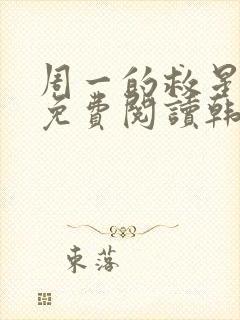 周一的救星
免費閱讀韩
東落